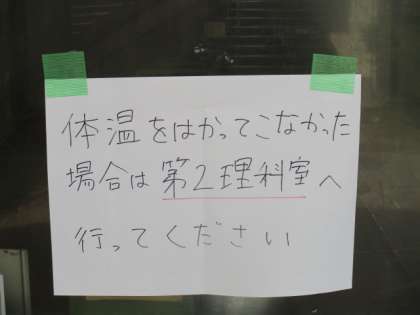 体温をはかってこなかった
場合は第2理科室へ
行ってください